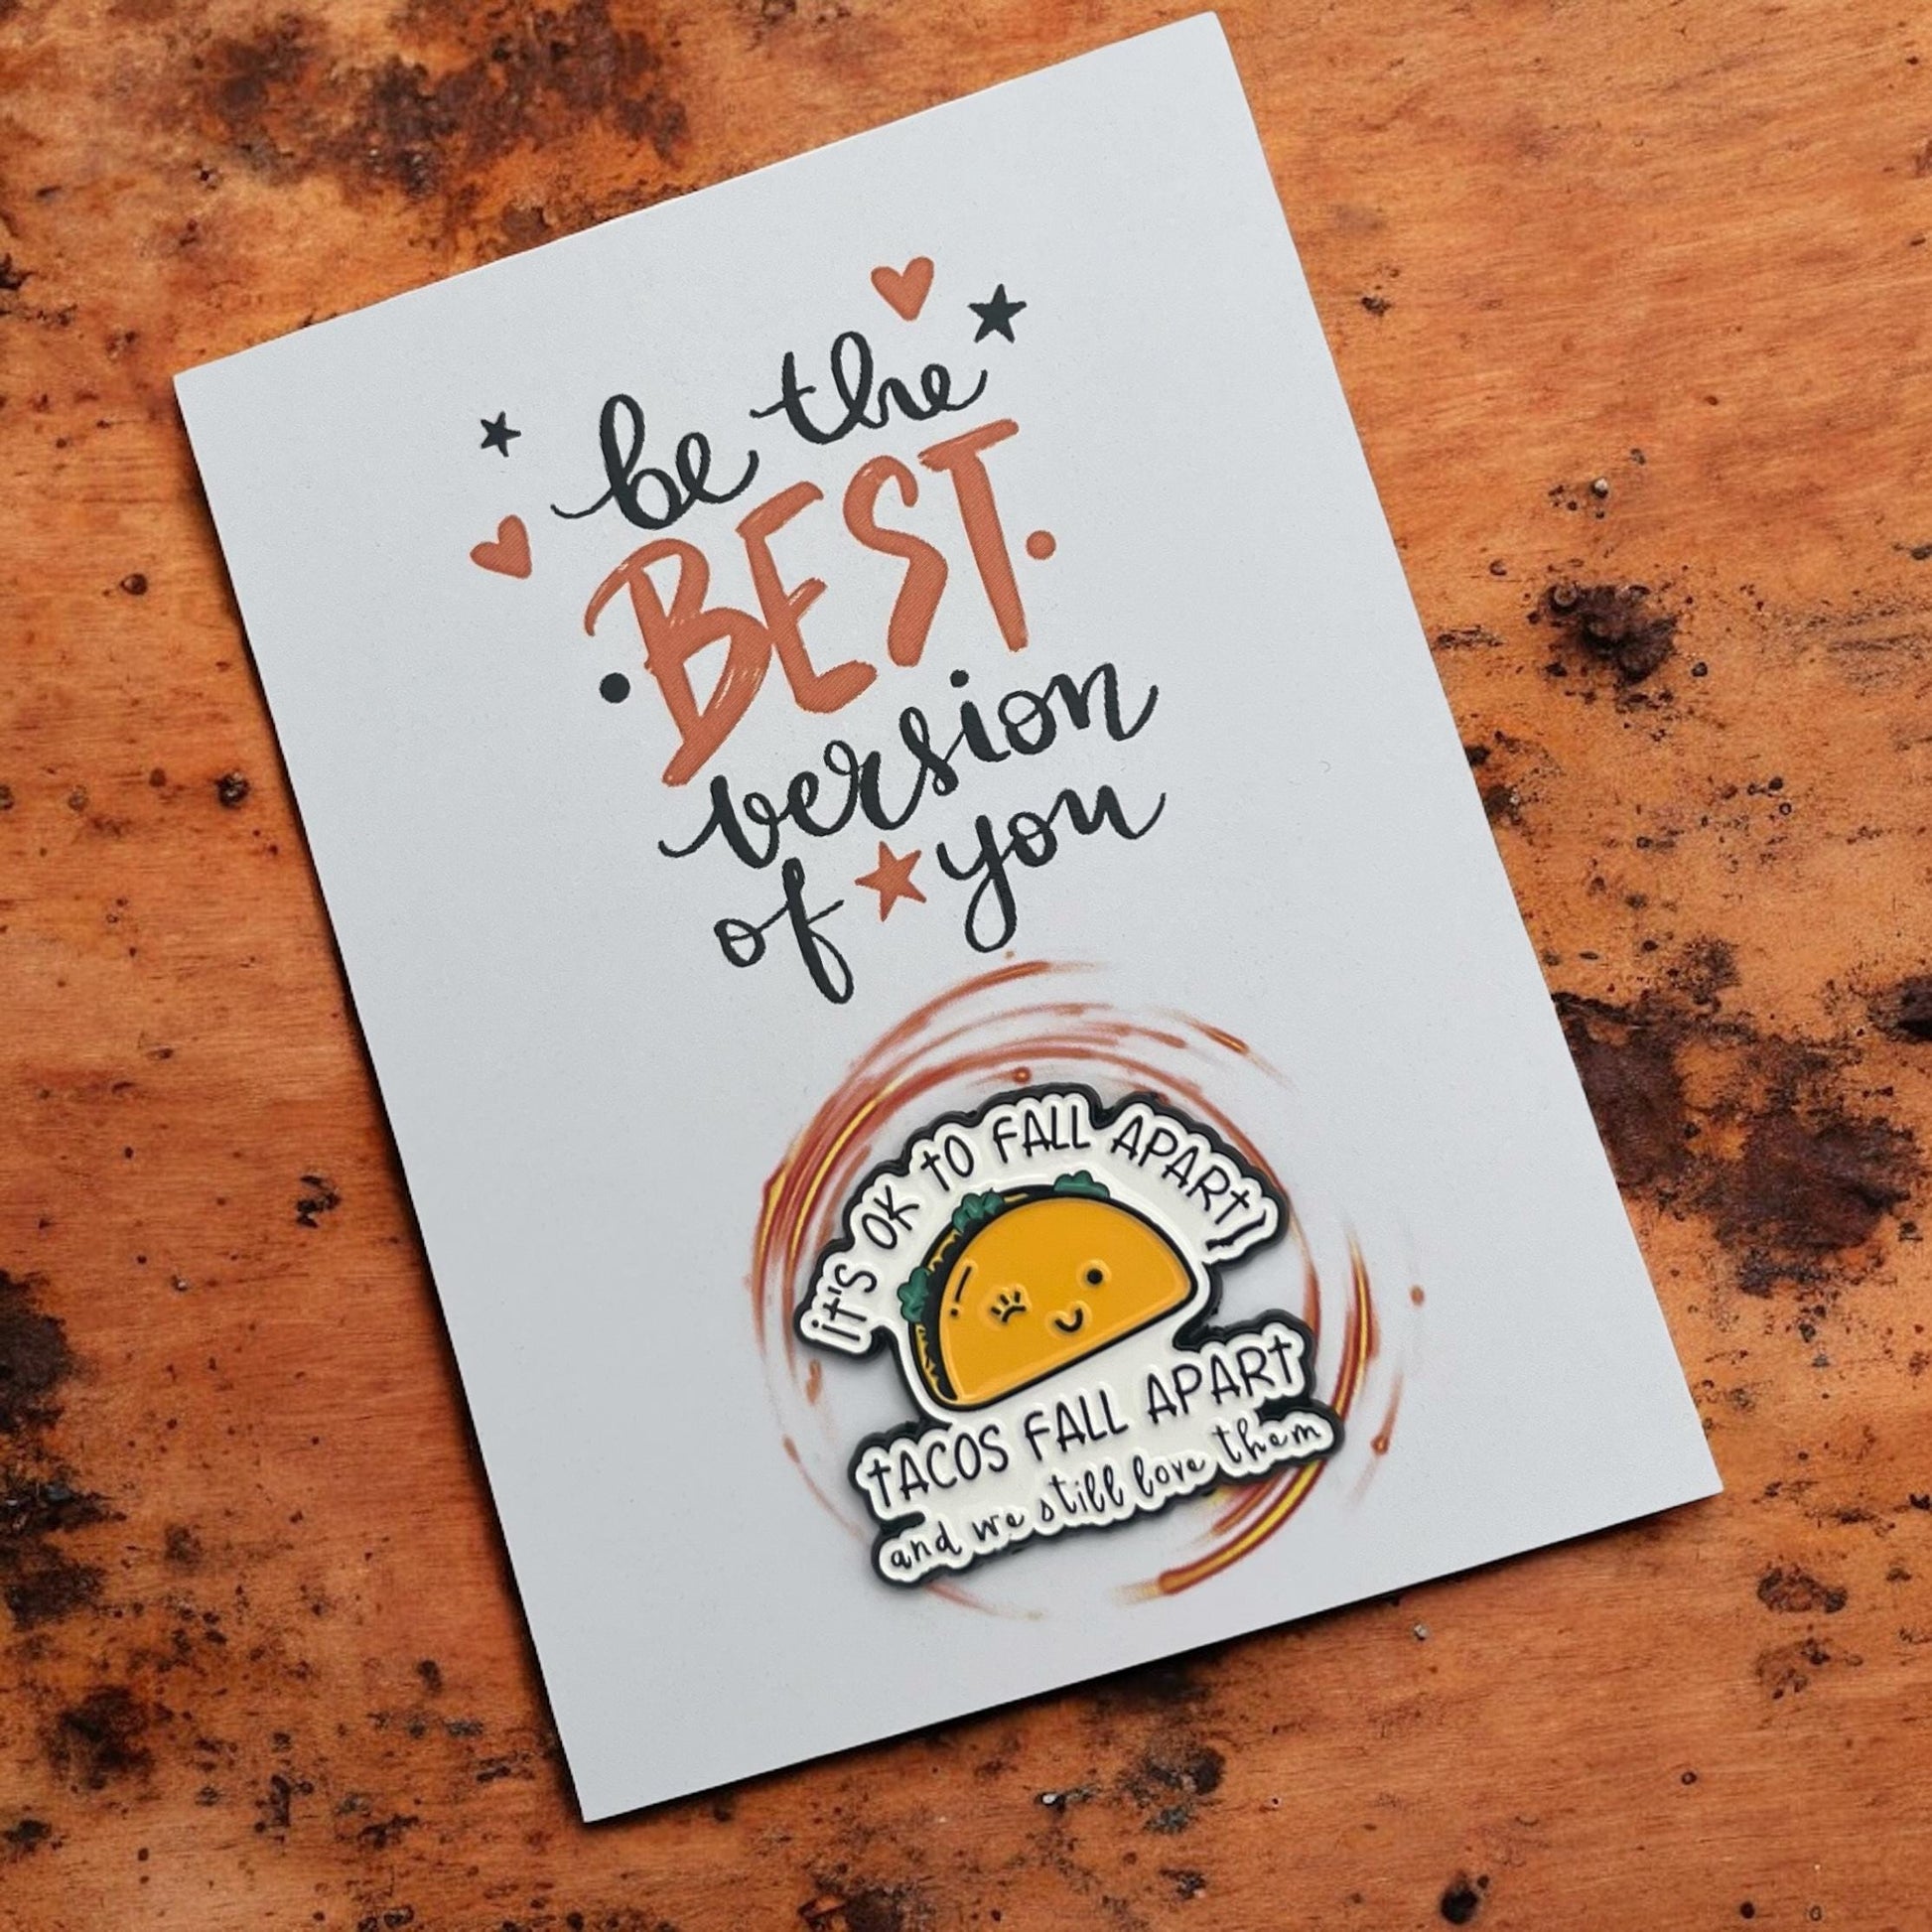 be the
BEST
version
of you
it's OK tO FALL APARt)
tACOS FALL APARt
and we still love them